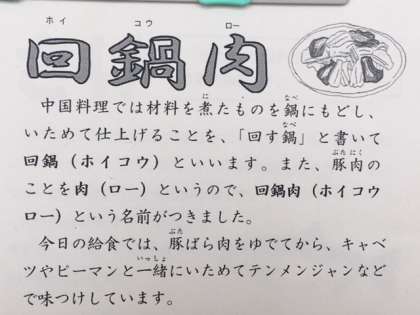 ホイ コウ ロー
回鍋肉
に なべ
中国料理では材料を煮たものを鍋にもどし、
なべ
いためて仕上げることを、「回す鍋」と書いて
ぶたにく
回鍋(ホイコウ)といいます。また、豚肉の
ことを肉(ロー)というので、回鍋肉(ホイコウ
ロー)という名前がつきました。
ぶた
今日の給食では、豚ばら肉をゆでてから、キャベ
いっしょ
ツやピーマンと一緒にいためてテンメンジャンなど
で味つけしています。